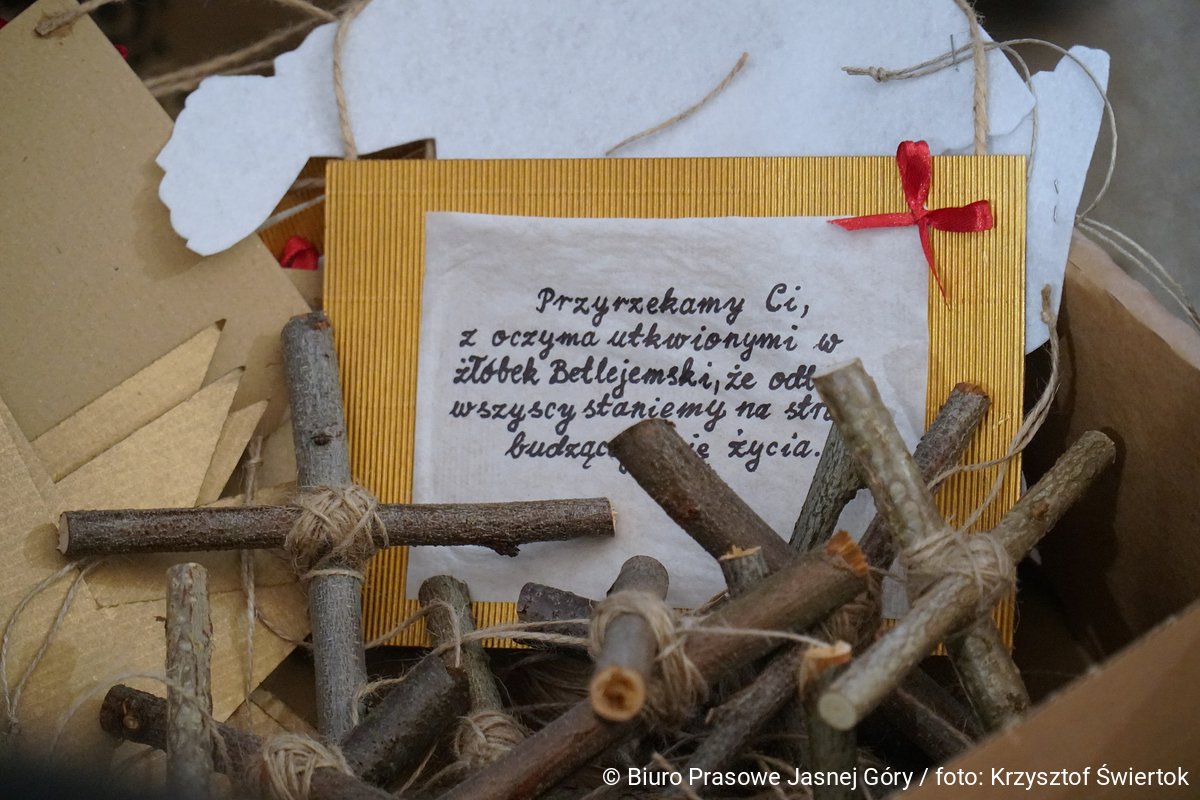 Przyrzekamy Ci,
z oczyma utkwionymi w
żłóbek Betlejemski, że
wszyscy staniemy na
życia.
© Biuro Prasowe Jasnej Góry / foto: Krzysztof Świertok